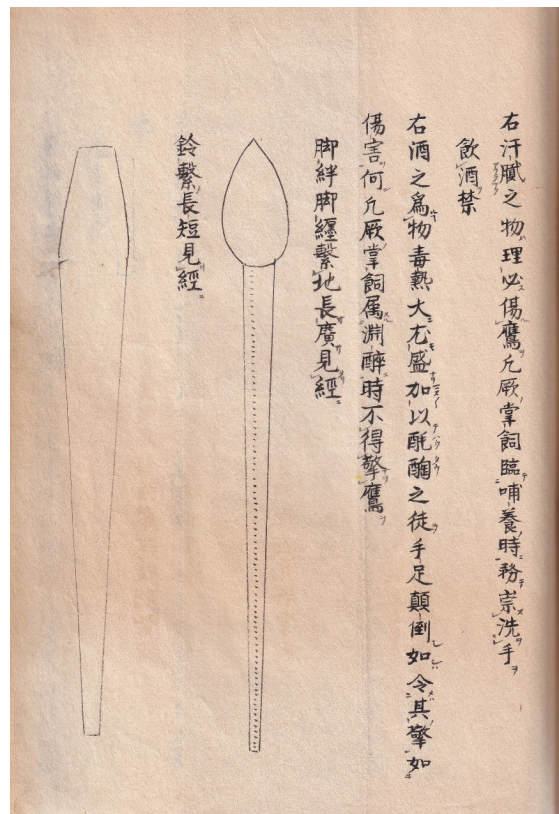 右汗膩之物理必傷鷹凡厥掌飼臨哺養時務崇洗手
飲酒禁
右酒之爲物毒熱大尤盛加以酕醄之徒手足顛倒如令其擎如
傷害何凡厥掌飼属淵酔時不得擎鷹
脚絆脚纏繫地長廣見經
鈴繫長短見經